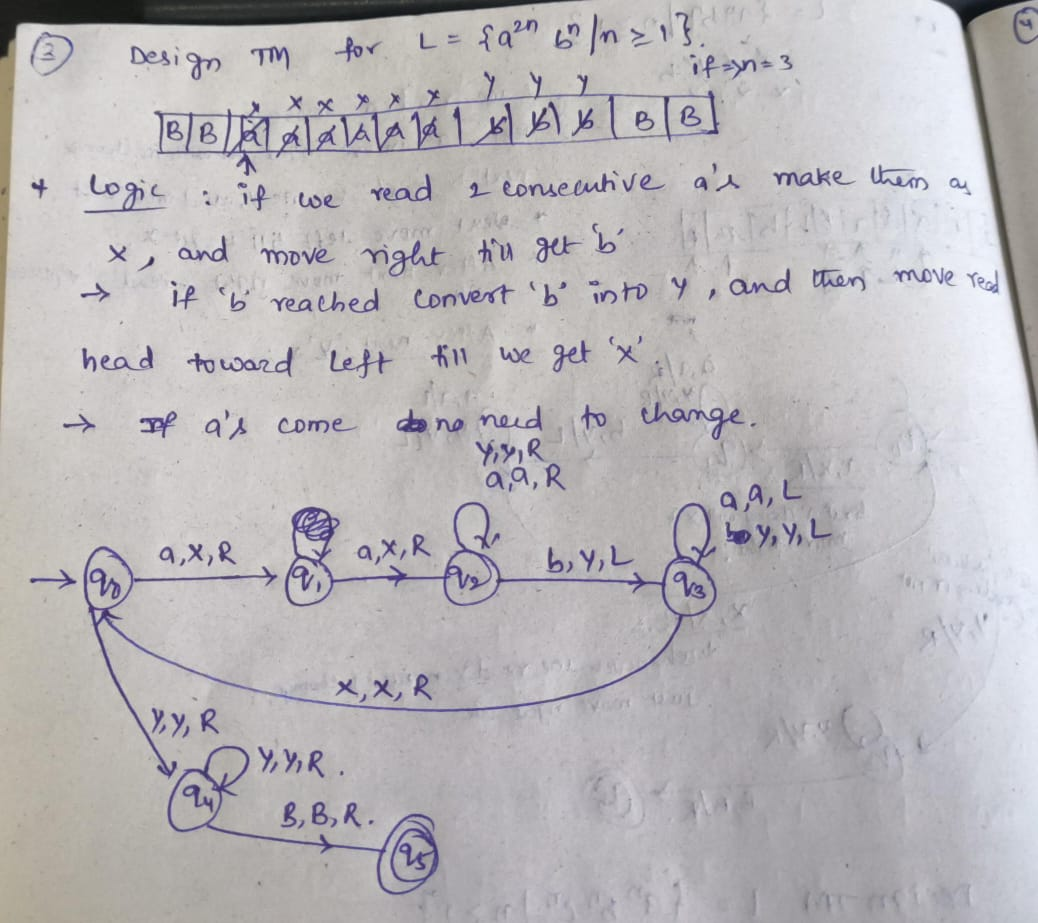 3
Design TM for L = {a²ⁿ bⁿ | n ≥ 1}.
4
if ⇒ n = 3
x x x x x x y y y
B B a a a a a a b b b B B
+ Logic : if we read 2 consecutive a's make them as
x, and move right till get 'b'
→ if 'b' reached convert 'b' into y, and then move read
head toward left till we get 'x'.
→ If a's come no need to change.
y,y,R
a,a,R
a,a,L
y,y,L
a,x,R
a,x,R
b,y,L
q₀
q₁
q₂
q₃
x,x,R
y,y,R
y,y,R.
q₄
B,B,R.
q₅